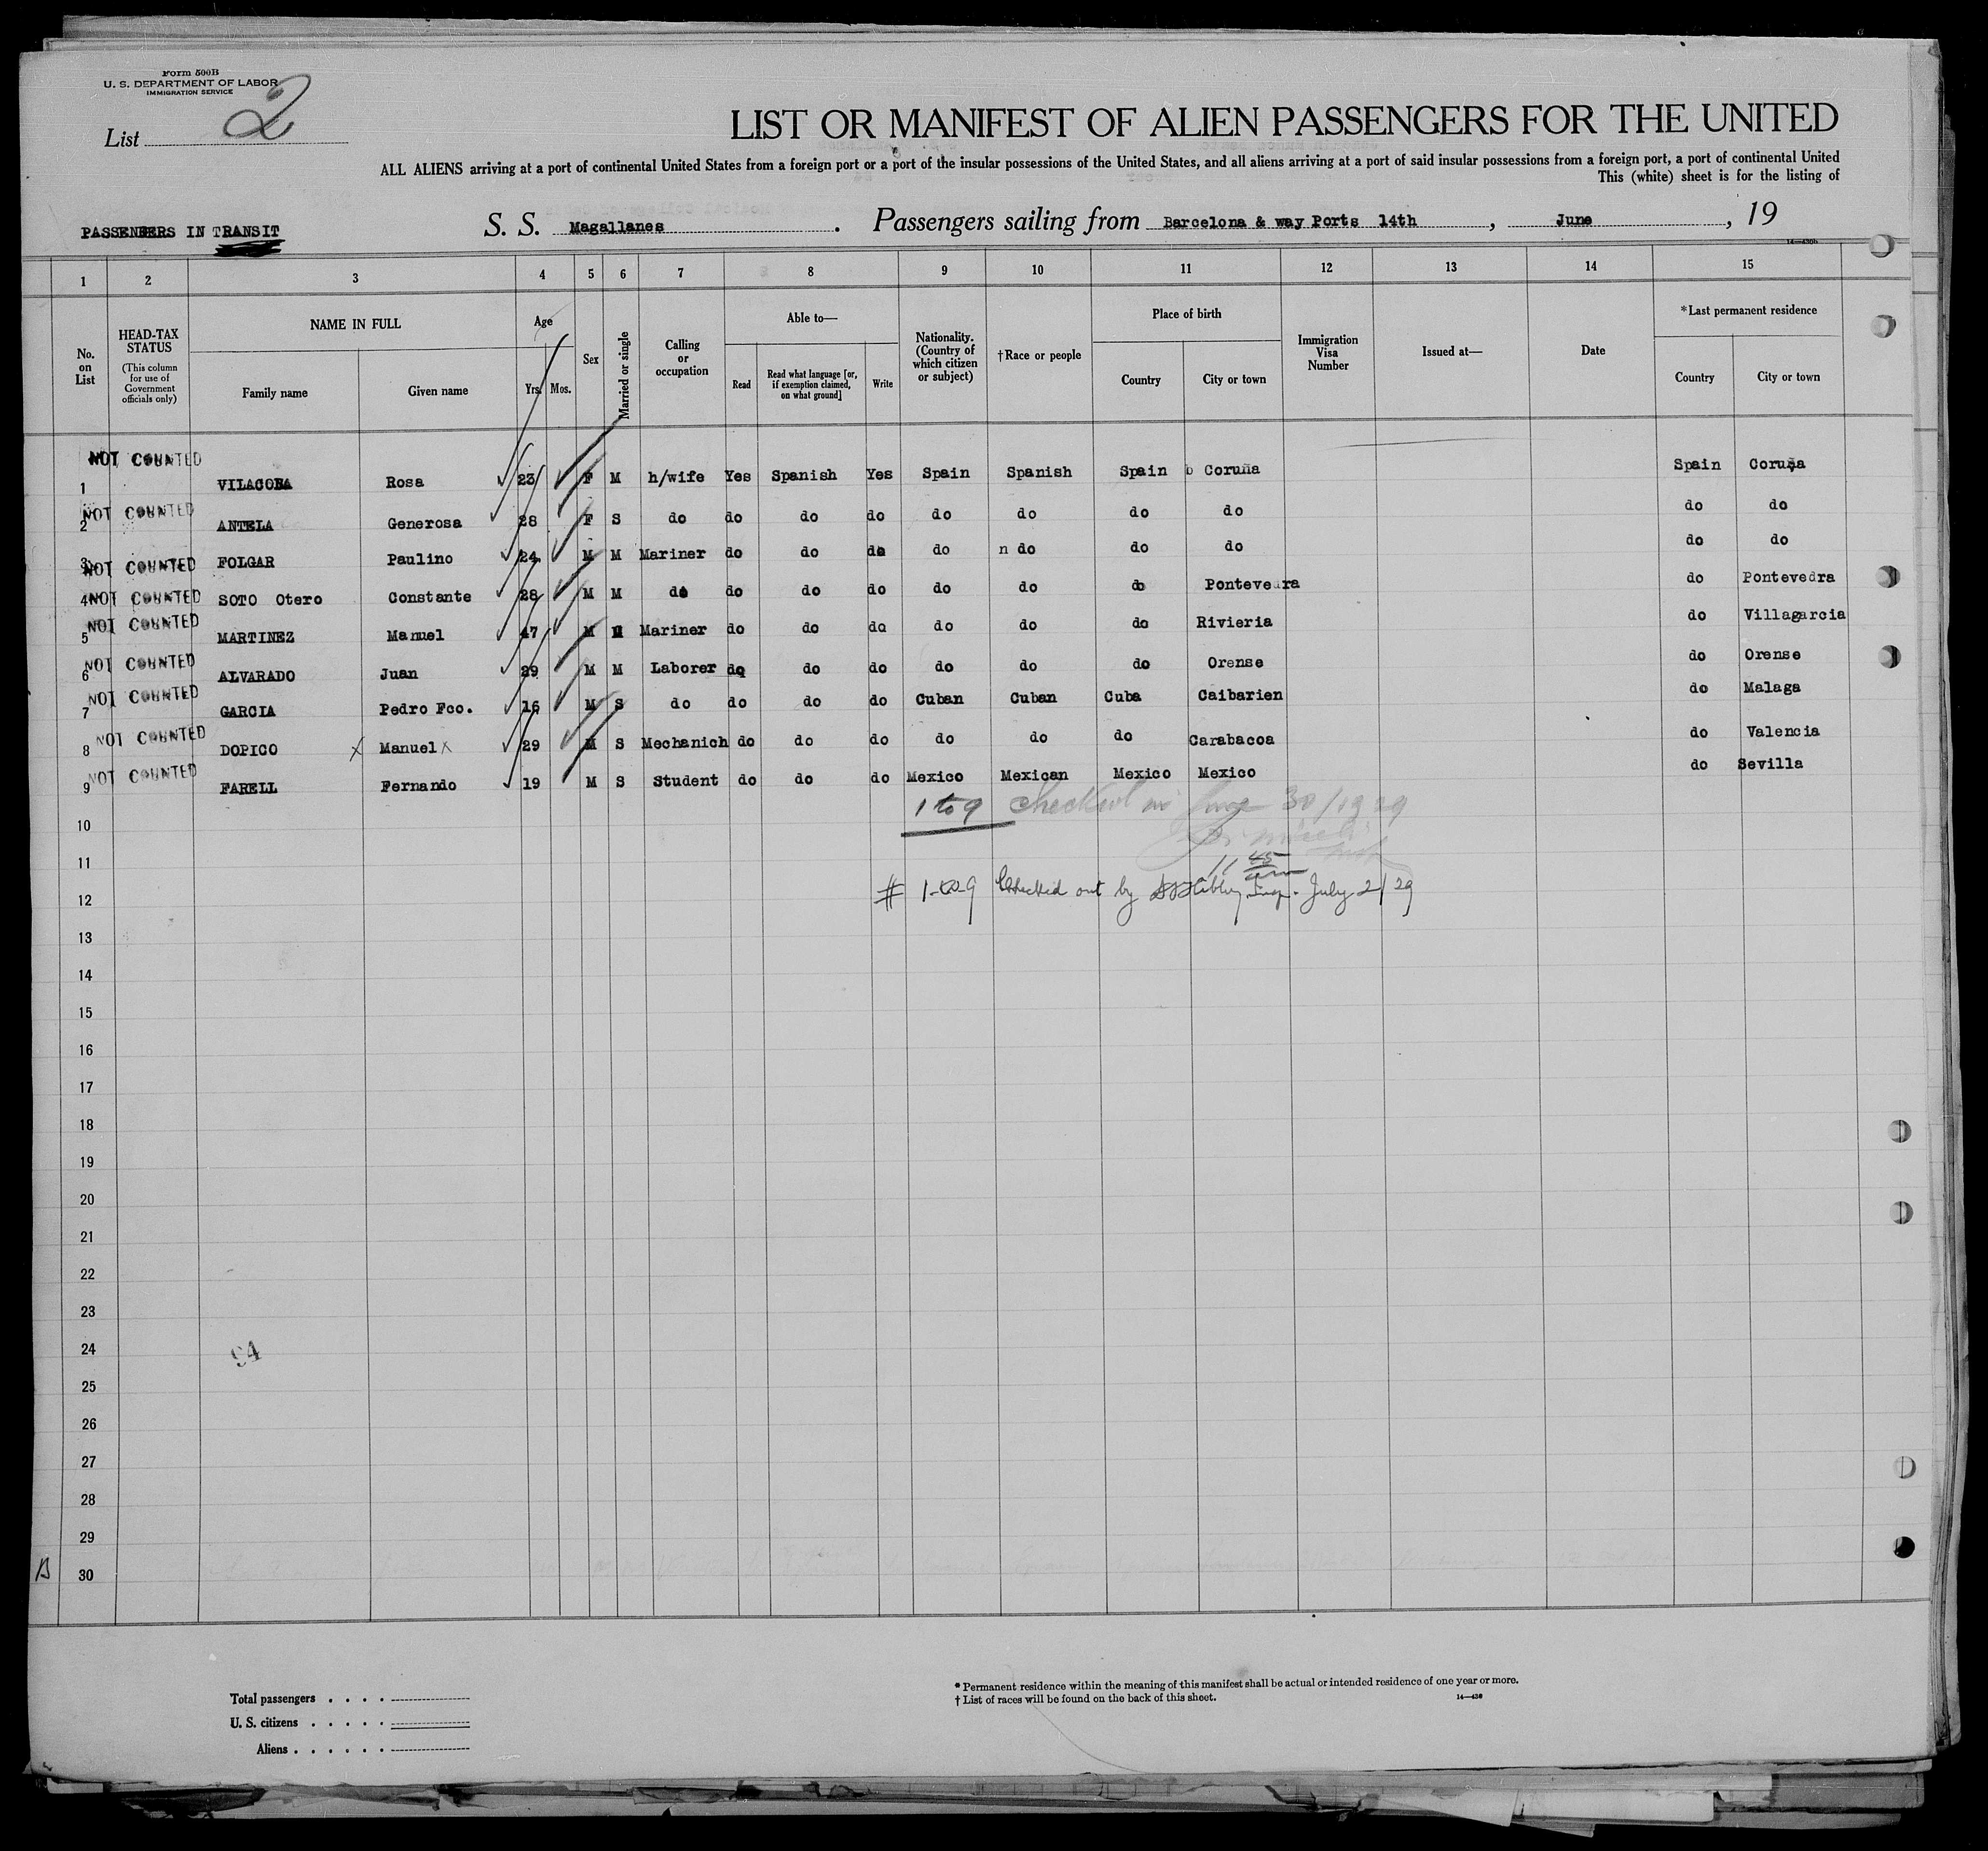 Form 500B
U. S. DEPARTMENT OF LABOR
IMMIGRATION SERVICE
List 2
LIST OR MANIFEST OF ALIEN PASSENGERS FOR THE UNITED
ALL ALIENS arriving at a port of continental United States from a foreign port or a port of the insular possessions of the United States, and all aliens arriving at a port of said insular possessions from a foreign port, a port of continental United
This (white) sheet is for the listing of
PASSENGERS IN TRANSIT S. S. Magallanes . Passengers sailing from Barcelona & way Ports 14th , June , 19
14—430b
1 2 3 4 5 6 7 8 9 10 11 12 13 14 15
No. on List
HEAD-TAX STATUS
(This column for use of Government officials only)
NAME IN FULL
Family name Given name
Age
Yrs. Mos.
Sex
Married or single
Calling or occupation
Able to—
Read
Read what language [or, if exemption claimed, on what ground]
Write
Nationality. (Country of which citizen or subject)
†Race or people
Place of birth
Country City or town
Immigration Visa Number
Issued at—
Date
*Last permanent residence
Country City or town
NOT COUNTED
1 Rosa 23 F M h/wife Yes Spanish Yes Spain Spanish Spain b Coruña Spain Coruña
NOT COUNTED
2 ANTELA Generosa 28 F S do do do do do do do do do do
NOT COUNTED
3 FOLGAR Paulino 24 M M Mariner do do do do n do do do do do
NOT COUNTED
4 SOTO Otero Constante 28 M M do do do do do do do Pontevedra do Pontevedra
NOT COUNTED
5 MARTINEZ Manuel 47 M M Mariner do do do do do do Rivieria do Villagarcia
NOT COUNTED
6 ALVARADO Juan 29 M M Laborer do do do do do do Orense do Orense
NOT COUNTED
7 GARCIA Pedro Fco. 16 M S do do do do Cuban Cuban Cuba Caibarien do Malaga
NOT COUNTED
8 DOPICO x Manuel x 29 M S Mechanich do do do do do do Carabacoa do Valencia
NOT COUNTED
9 FARELL Fernando 19 M S Student do do do Mexico Mexican Mexico Mexico do Sevilla
1 to 9 Checked in June 30/1929
10
11
11 45 am
12 # 1-to-9 Checked out by Insp. July 2/29
13
14
15
16
17
18
19
20
21
22
23
24
94
25
26
27
28
29
B 30
Total passengers . . . .
U. S. citizens . . . . .
Aliens . . . . . .
* Permanent residence within the meaning of this manifest shall be actual or intended residence of one year or more.
† List of races will be found on the back of this sheet.
14—430